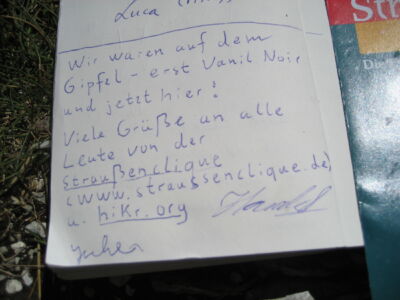 Luca
Wir waren auf dem
Gipfel - erst Vanil Noir
und jetzt hier!
Viele Grüße an alle
Leute von der
straußenclique
(www.straussenclique.de)
u. hikr.org